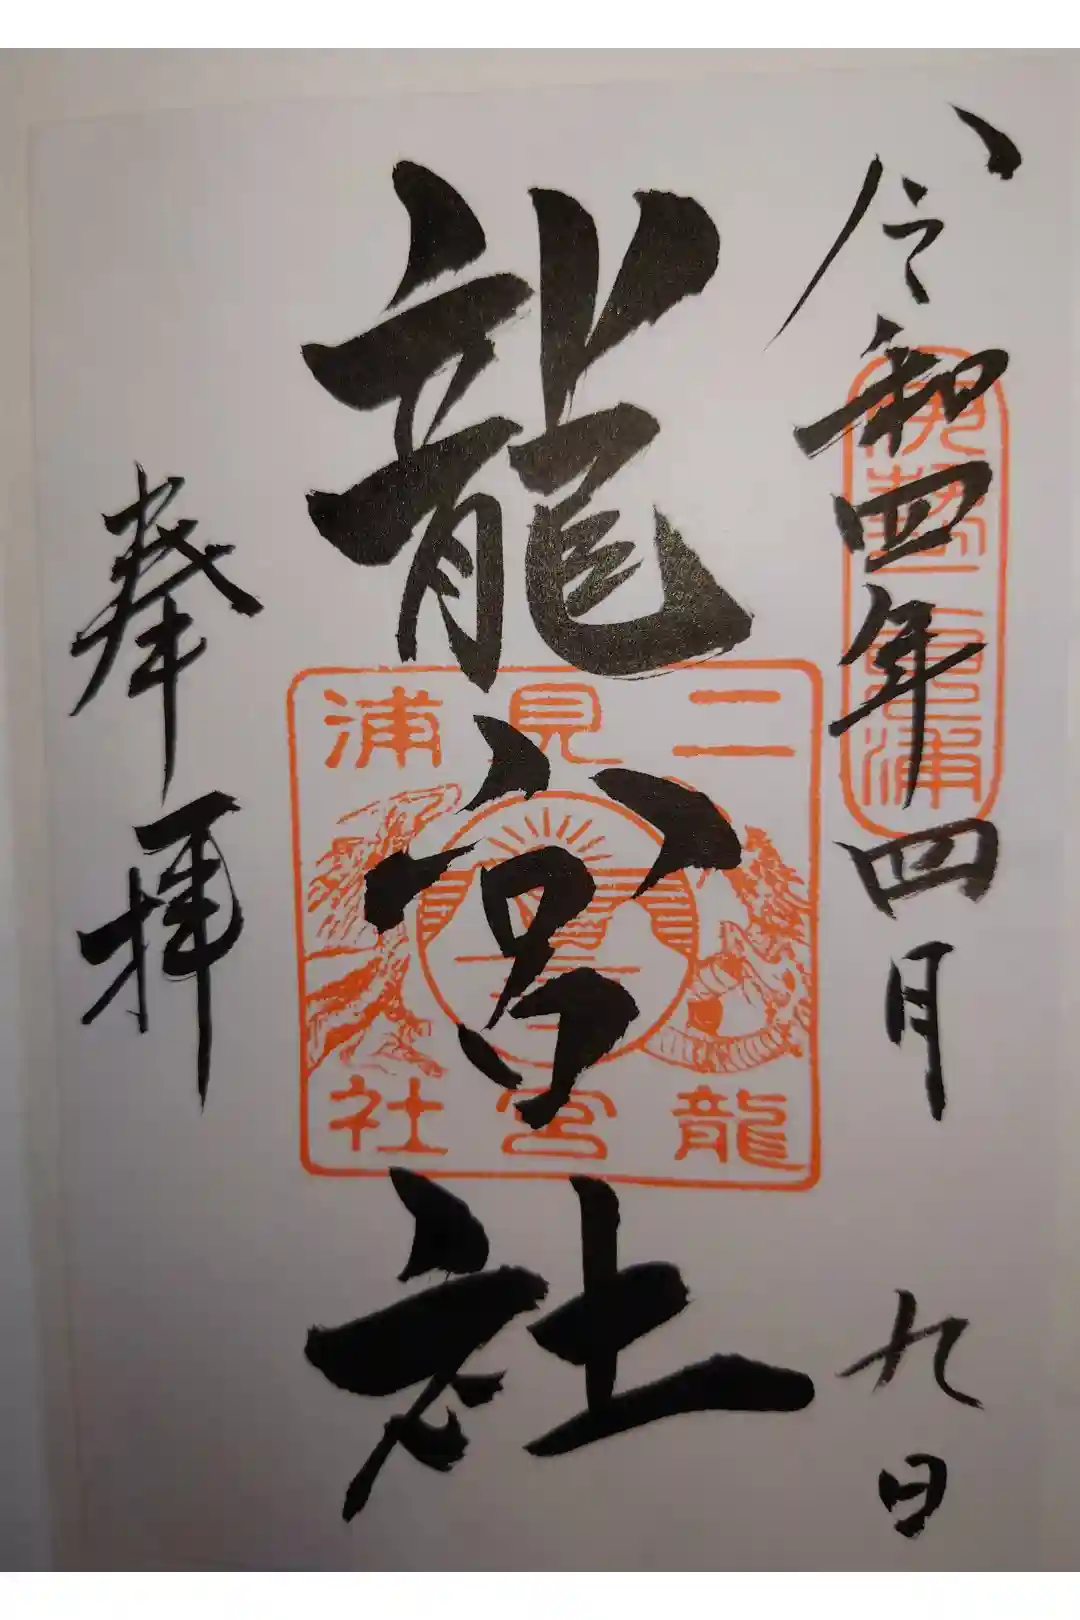 令和四年四月九日
伊勢二見浦
龍宮社
二見浦
龍宮社
奉拝